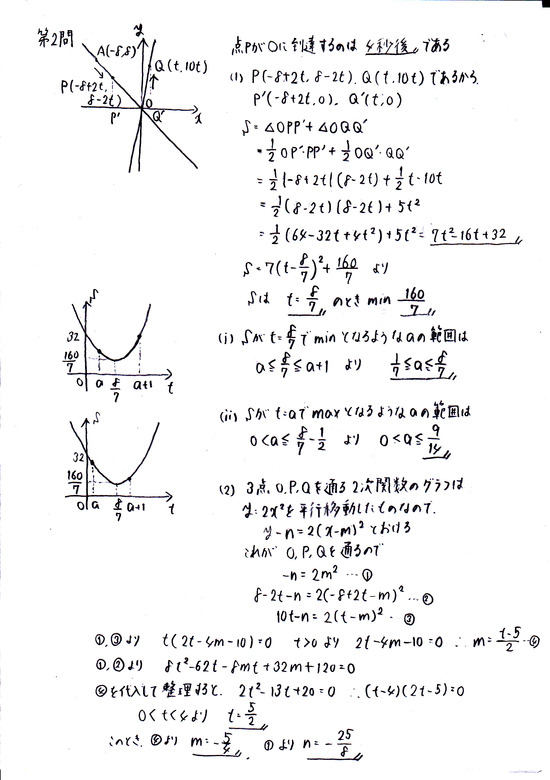 第2問
y
A(-8,8)
Q(t,10t)
P(-8+2t,
8-2t)
P' O Q' x
点PがOに到達するのは 4秒後 である
(1) P(-8+2t, 8-2t), Q(t,10t)であるから
P'(-8+2t,0), Q'(t,0)
S=△OPP'+△OQQ'
=1/2 OP'・PP'+1/2 OQ'・QQ'
=1/2|-8+2t|(8-2t)+1/2 t・10t
=1/2(8-2t)(8-2t)+5t²
=1/2(64-32t+4t²)+5t²=7t²-16t+32
S=7(t-8/7)²+160/7 より
Sは t=8/7 のとき min 160/7
S
32
160/7
O a 8/7 a+1 t
(i) Sがt=8/7でminとなるようなaの範囲は
a≦8/7≦a+1 より 1/7≦a≦8/7
S
32
160/7
O a 8/7 a+1 t
(ii) Sがt=aでmaxとなるようなaの範囲は
0<a≦8/7-1/2 より 0<a≦9/14
(2) 3点O,P,Qを通る2次関数のグラフは
y=2x²を平行移動したものなので、
y-n=2(x-m)²とおける
これが O,P,Qを通るので
-n=2m² …①
8-2t-n=2(-8+2t-m)² …②
10t-n=2(t-m)² …③
①,③より t(2t-4m-10)=0 t>0より 2t-4m-10=0 ∴m=t-5/2 …④
①,②より 8t²-62t-8mt+32m+120=0
④を代入して整理すると、 2t²-13t+20=0 ∴(t-4)(2t-5)=0
0<t<4より t=5/2
このとき、④より m=-5/4, ①より n=-25/8